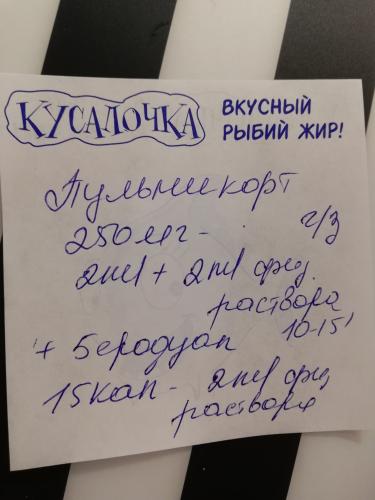 КУСАЛОЧКА
ВКУСНЫЙ
РЫБИЙ ЖИР!
Пульмикорт
250мг - ч/з
2ml + 2ml физ.
раствора
10-15'
+ Беродуал
15кап - 2ml физ,
раствора